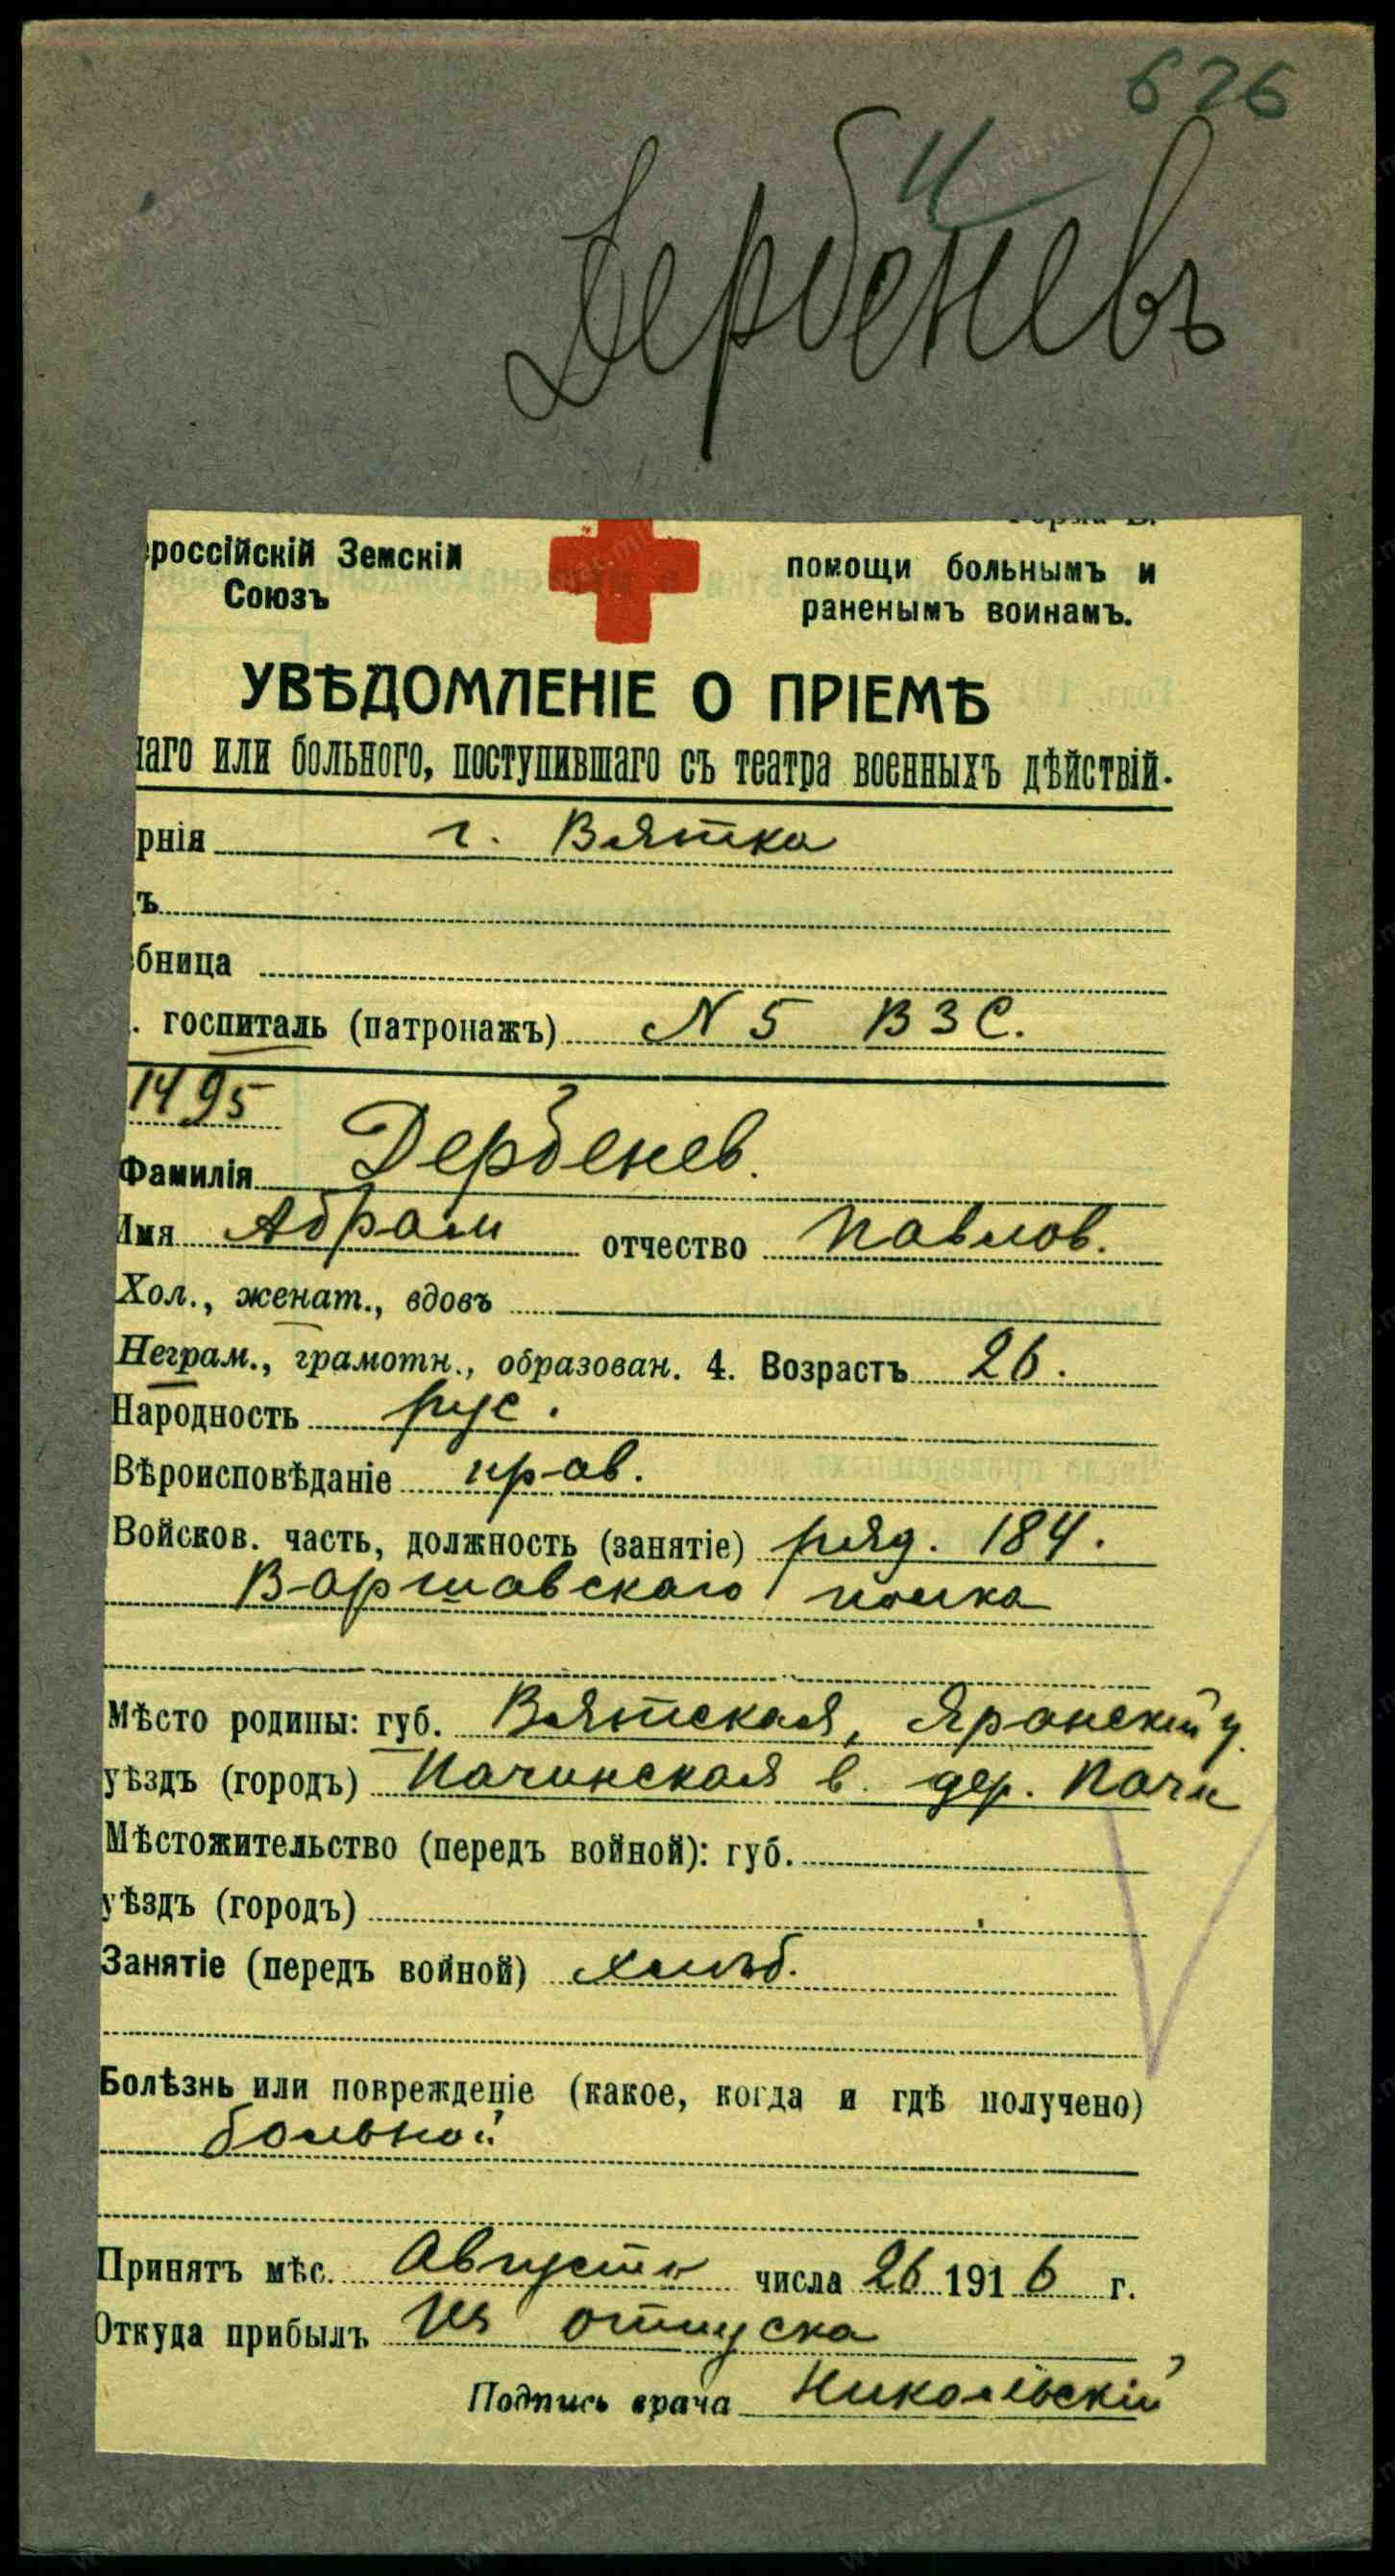 626
Дербеневъ
россійскій Земскій
Союзъ
помощи больнымъ и
раненымъ воинамъ.
УВѢДОМЛЕНІЕ О ПРІЕМѢ
наго или больного, поступившаго съ театра военныхъ дѣйствій.
рнія г. Вятка
ъ
бница
. госпиталь (патронажъ) N 5 ВЗС.
1495
Фамилія Дербенев.
Имя Абрам отчество Павлов.
Хол., женат., вдовъ
Неграм., грамотн., образован. 4. Возрастъ 26.
Народность рус.
Вѣроисповѣданіе прав.
Войсков. часть, должность (занятіе) ряд. 184.
Варшавскаго полка
Мѣсто родины: губ. Вятская, Яранскій у.
уѣздъ (городъ) Пачинская в. дер. Пачи
Мѣстожительство (передъ войной): губ.
уѣздъ (городъ)
Занятіе (передъ войной) хлѣб.
Болѣзнь или поврежденіе (какое, когда и гдѣ получено)
больной
Принятъ мѣс. Августа числа 26 1916 г.
Откуда прибылъ Из отпуска
Подпись врача Никольскій